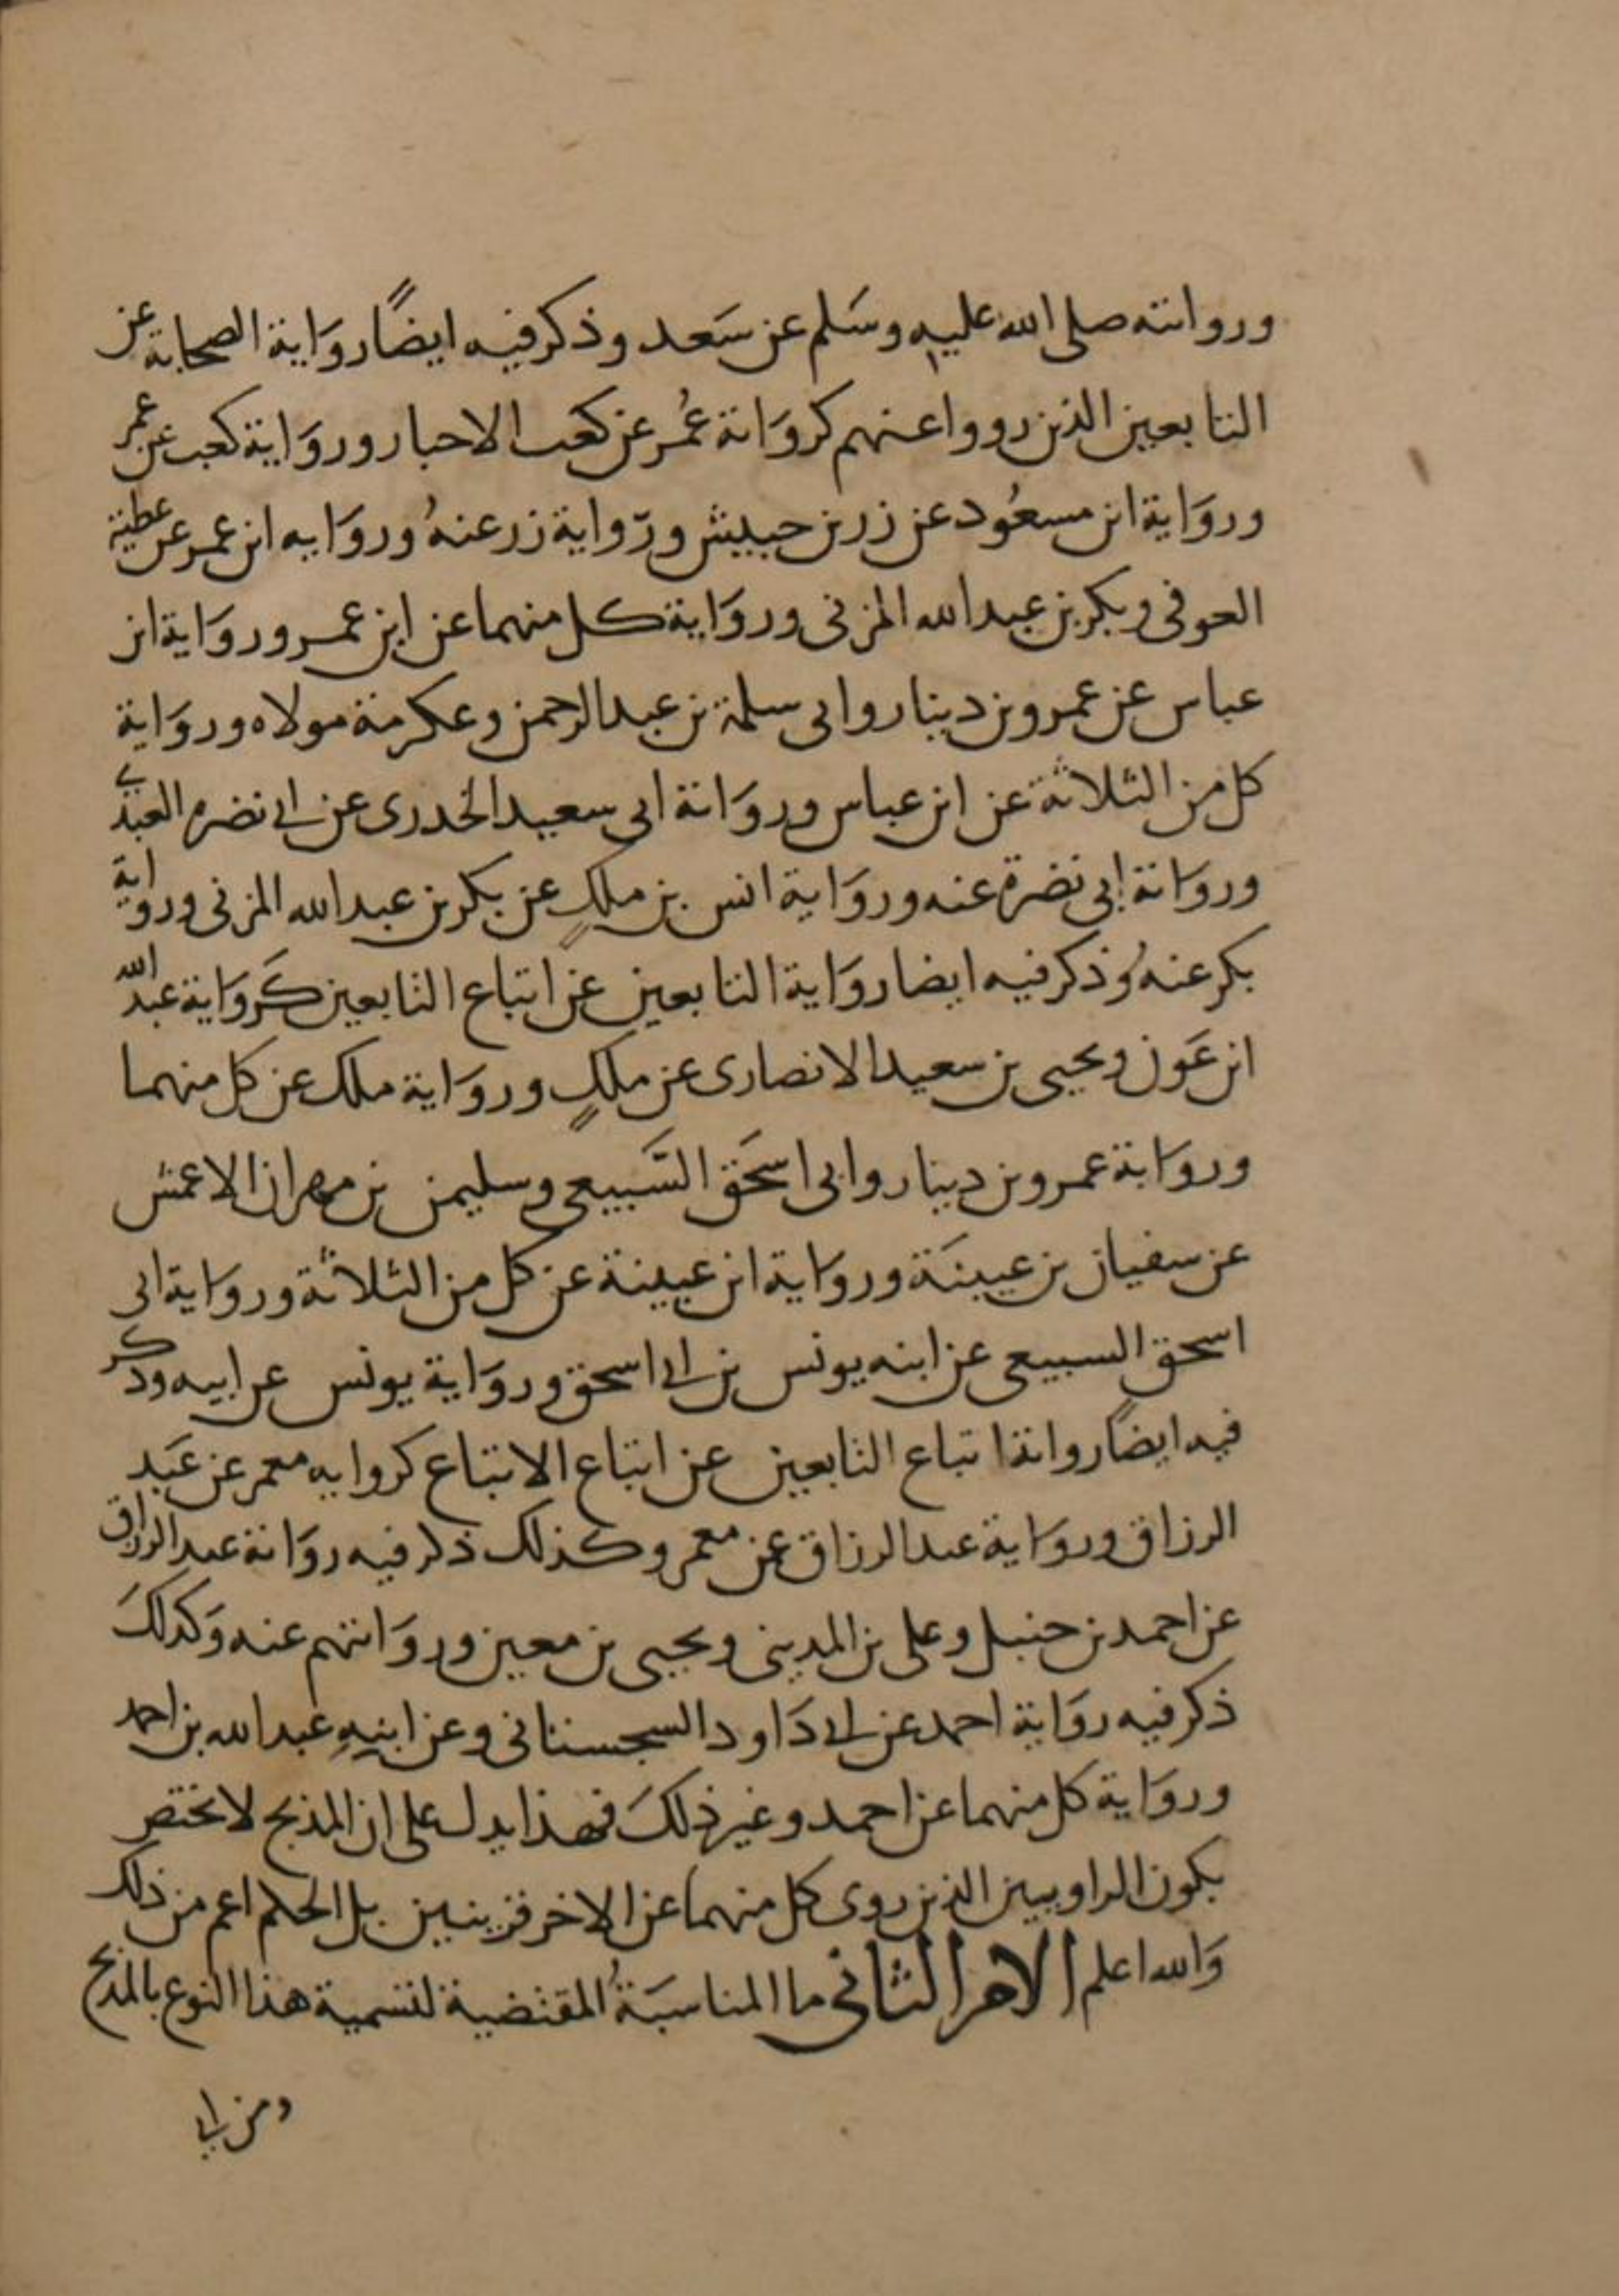 وروايته صلى الله عليه وسلم عن سعد وذكر فيه ايضًا رواية الصحابة عن
التابعين الذين رووا عنهم كرواية عُمر عن كعب الاحبار ورواية كعب عن عمر
ورواية ابن مسعُود عن زر بن حبيش ورواية زر عنهُ ورواية ابن عمر عن عطية
العوفى وبكر بن عبد الله المزنى ورواية كل منهما عن ابن عمر ورواية ابن
عباس عن عمرو بن دينار وابى سلمة بن عبد الرحمن وعكرمة مولاه ورواية
كل من الثلاثة عن ابن عباس ورواية ابى سعيد الخدرى عن ابى نضرة العبدى
ورواية ابى نضرة عنه ورواية انس بن ملكٍ عن بكر بن عبد الله المزنى ورواية
بكر عنهُ وذكر فيه ايضا رواية التابعين عن اتباع التابعين كَرواية عبد الله
ابن عَون ويحيى بن سعيد الانصارى عن ملكٍ ورواية ملك عن كل منهما
ورواية عمرو بن دينار وابى اسحَق السَّبيعى وسليمن بن مهران الاعمش
عن سفيان بن عيينَة ورواية ابن عيينة عن كل من الثلاثة ورواية ابى
اسحق السبيعى عن ابنه يونس بن ابى اسحق ورواية يونس عن ابيه وذكر
فيه ايضًا رواية اتباع التابعين عن اتباع الاتباع كرواية معمر عن عَبد
الرزاق ورواية عبد الرزاق عن معمر وكذلك ذكر فيه رواية عبد الرزاق
عن احمد بن حنبل وعلى بن المدينى ويحيى بن معين وروايتهم عنه وَكذلكَ
ذكر فيه رواية احمد عن ابى دَاود السجستانى وعن ابنهِ عبد الله بن احمد
ورواية كل منهما عن احمد وغير ذلكَ فهذا يدل على ان المدبج لا يختص
بكون الراويين الذين روى كل منهما عن الاخر قرينين بل الحكم اعم من ذلك
وَالله اعلم الامر الثانى ما المناسبَةُ المقتضية لتسمية هذا النوع بالمدبج
ومن اى